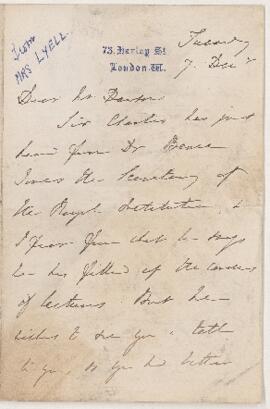 from
MRS LYELL.
73. Harley St
London. W.
Tuesday
7. Dec r
Dear Mr Dawson
Sir Charles has just
heard from Dr Bence
Jones the Secretary of
the Royal Institution, &
I fear from what he says
he has filled up the
of lectures. But he
wishes to see you & talk
to you, so you had better